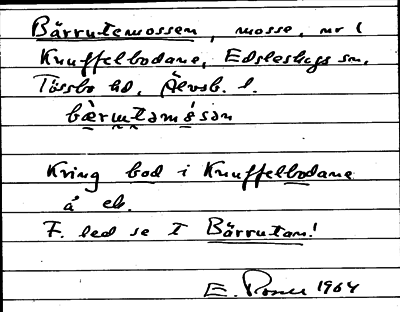 Bärrutemossen, mosse, nr 1
Knuffelbodane, Edsleskogs sn,
Tössbo hd, Älvsb. l.
bærutamósan
Kring bod i Knuffelbodane
å eb.
F. led se t Bärrutan!
E. 1964